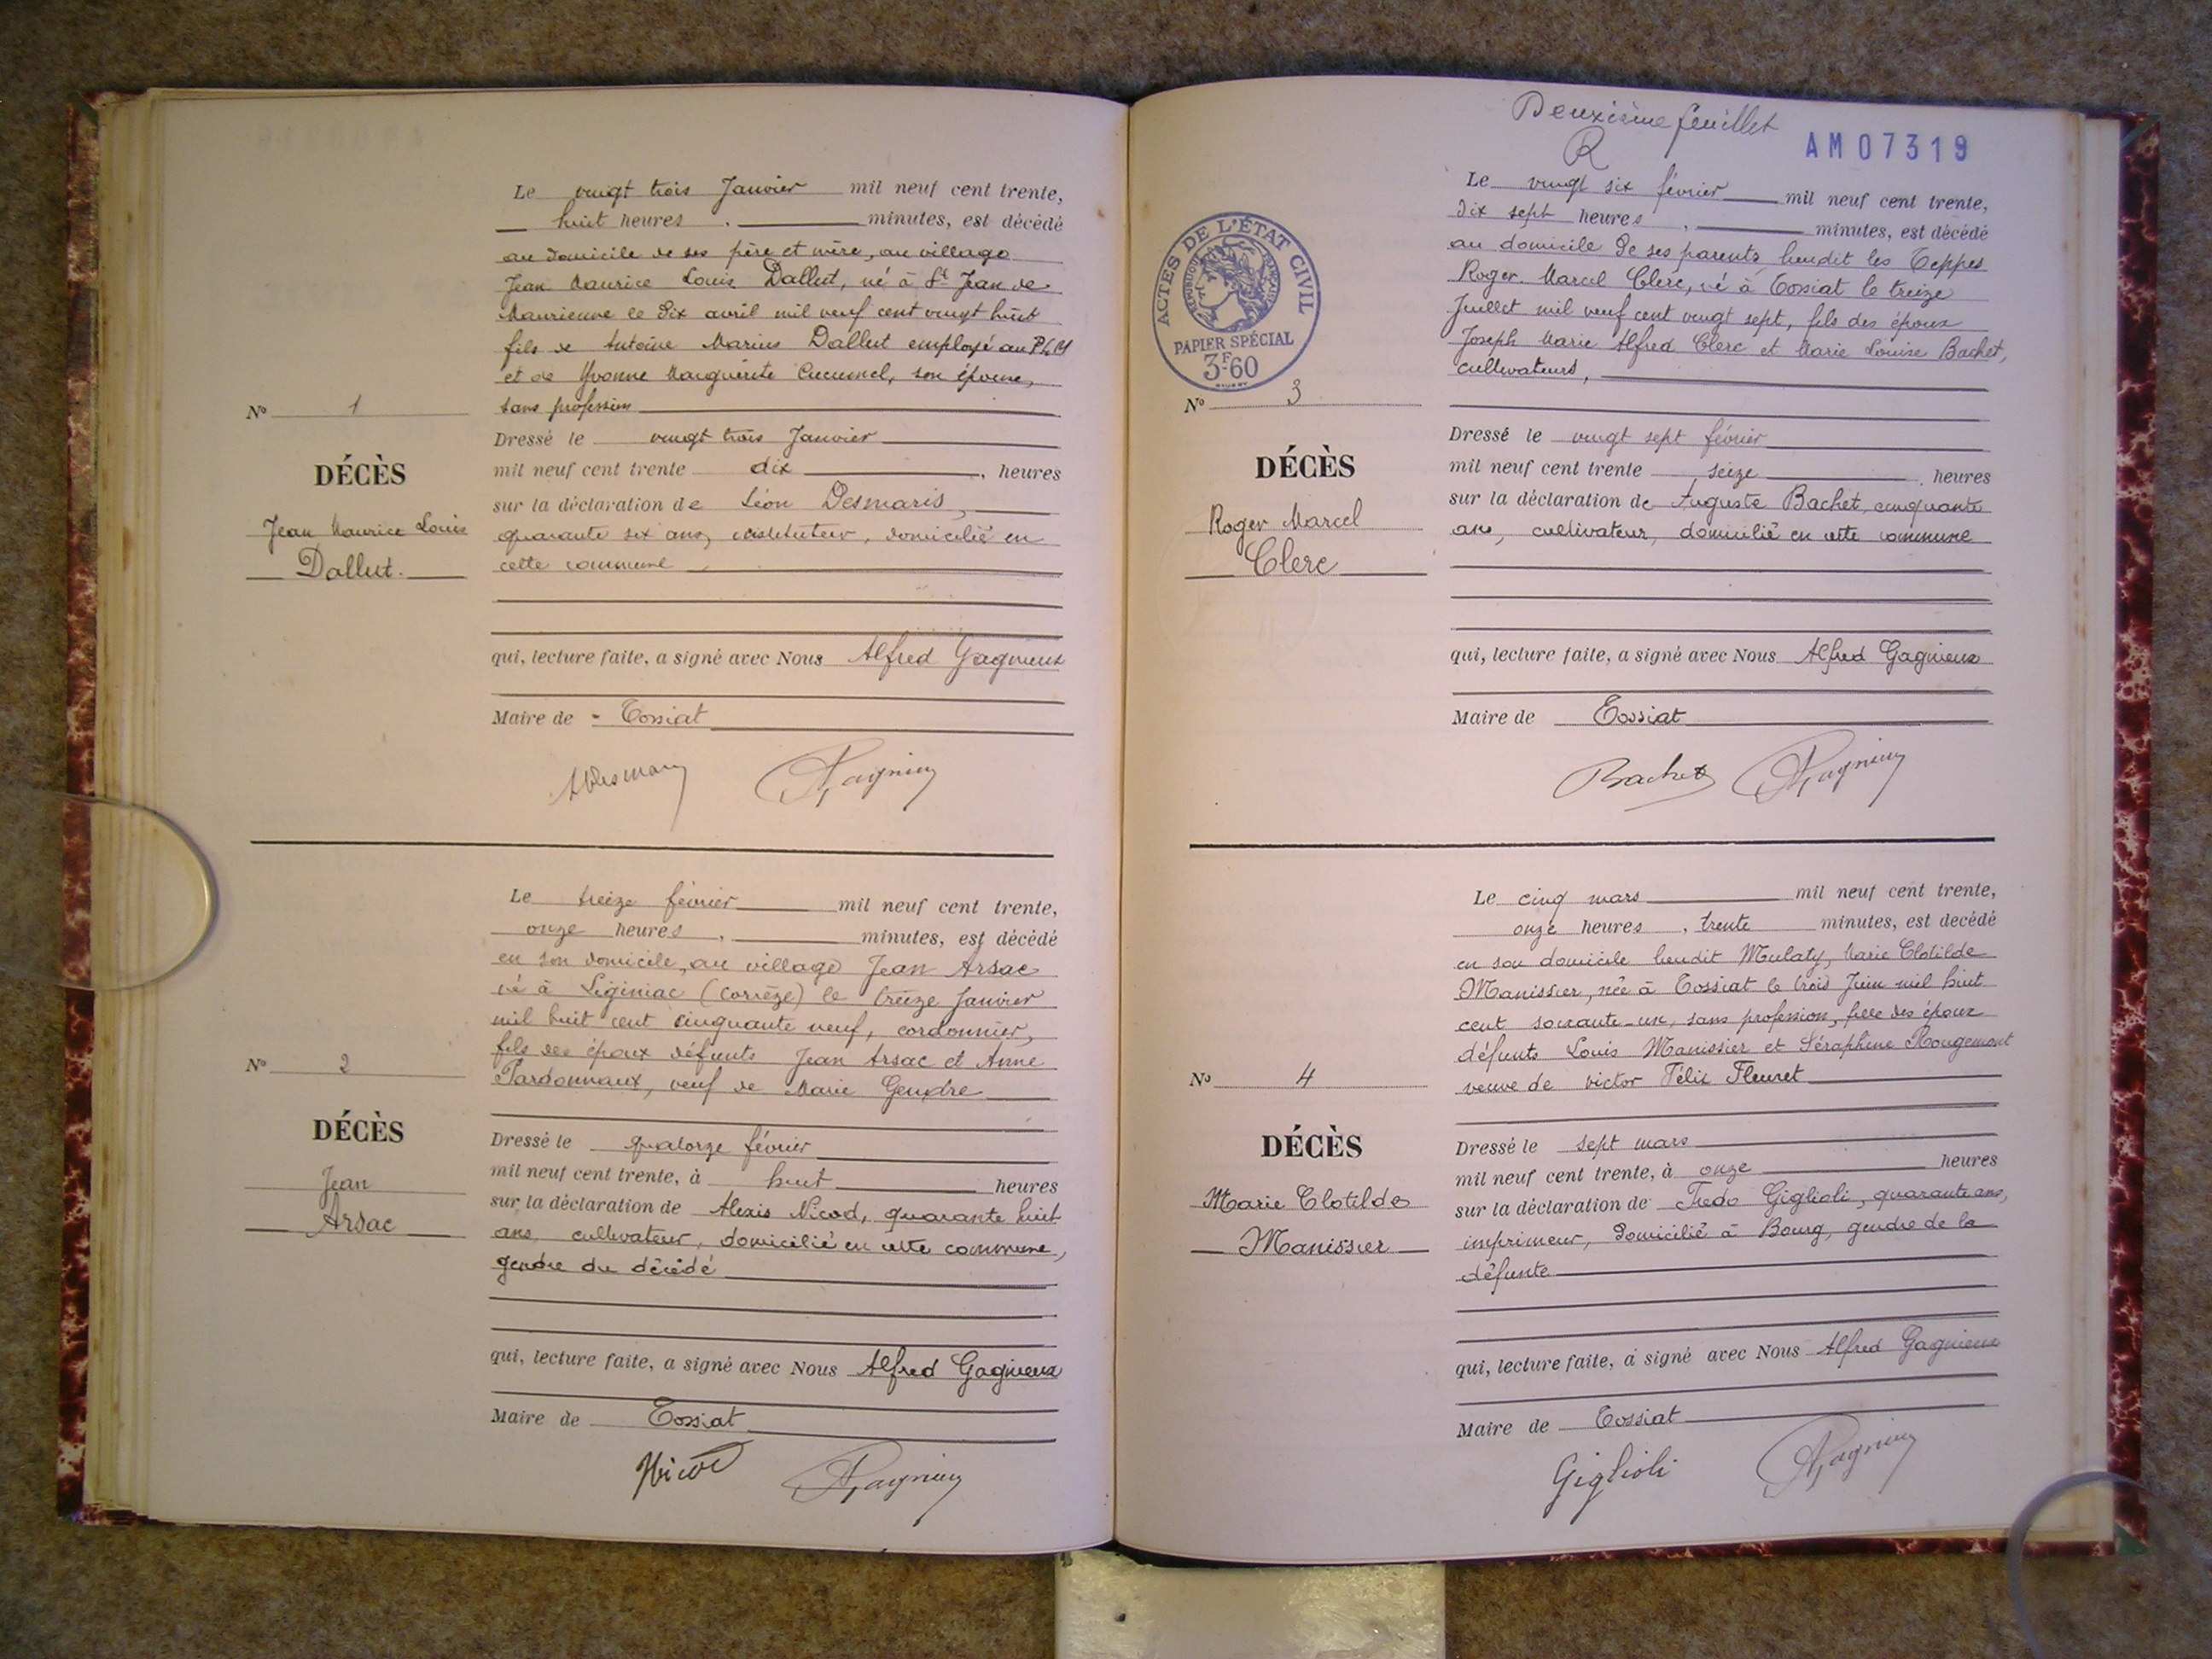 Le vingt trois Janvier mil neuf cent trente,
huit heures , minutes, est décédé
au domicile de ses père et mère, au village
Jean Maurice Louis Dallut, né à St Jean de
Maurienne le dix avril mil neuf cent vingt huit
fils de Antoine Marius Dallut employé au P.L.M
et de Yvonne Marguerite Cucumel, son épouse,
sans profession
No 1
DÉCÈS
Jean Maurice Louis
Dallut.
Dressé le vingt trois Janvier
mil neuf cent trente dix , heures
sur la déclaration de Léon Desmaris,
quarante six ans, instituteur, domicilié en
cette commune
qui, lecture faite, a signé avec Nous Alfred Gagnieux
Maire de - Tossiat
Gagnieux
Le treize février mil neuf cent trente,
onze heures , minutes, est décédé
en son domicile, au village Jean Arsac
né à Liginiac (Corrèze) le treize Janvier
mil huit cent cinquante neuf, cordonnier,
fils des époux défunts Jean Arsac et Anne
Pardonnaux, veuf de Marie Gendre
No 2
DÉCÈS
Jean
Arsac
Dressé le quatorze février
mil neuf cent trente, à huit heures
sur la déclaration de Alexis Nicod, quarante huit
ans, cultivateur, domicilié en cette commune,
gendre du décédé
qui, lecture faite, a signé avec Nous Alfred Gagnieux
Maire de Tossiat
Nicod Gagnieux
Deuxième feuillet
R
AM07319
ACTES DE L'ÉTAT CIVIL
RÉPUBLIQUE FRANÇAISE
PAPIER SPÉCIAL
3F60
Le vingt six février mil neuf cent trente,
dix sept heures , minutes, est décédé
au domicile de ses parents, lieudit les Teppes
Roger Marcel Clerc, né à Tossiat le treize
Juillet mil neuf cent vingt sept, fils des époux
Joseph Marie Alfred Clerc et Marie Louise Bachet,
cultivateurs,
No 3
DÉCÈS
Roger Marcel
Clerc
Dressé le vingt sept février
mil neuf cent trente seize , heures
sur la déclaration de Auguste Bachet, cinquante
ans, cultivateur, domicilié en cette commune
qui, lecture faite, a signé avec Nous Alfred Gagnieux
Maire de Tossiat
Bachet Gagnieux
Le cinq mars mil neuf cent trente,
onze heures , trente minutes, est decédé
en son domicile lieudit Mulaty, Marie Clotilde
Manissier, née à Tossiat le trois Juin mil huit
cent soixante-un, sans profession, fille des époux
défunts Louis Manissier et Séraphine Rougemont
veuve de Victor Félix Fleuret
No 4
DÉCÈS
Marie Clotilde
Manissier
Dressé le sept mars
mil neuf cent trente, à onze heures
sur la déclaration de Giglioli, quarante ans,
imprimeur, domicilié à Bourg, gendre de la
défunte
qui, lecture faite, a signé avec Nous Alfred Gagnieux
Maire de Tossiat
Giglioli Gagnieux